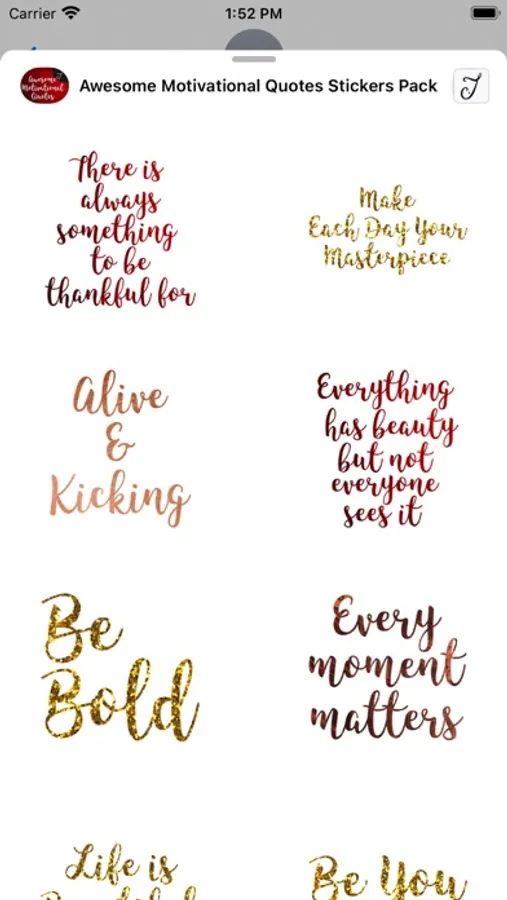 Carrier 1:52 PM
Awesome Motivational Quotes
Awesome Motivational Quotes Stickers Pack
There is
always
something
to be
thankful for
Make
Each Day Your
Masterpiece
Alive
&
Kicking
Everything
has beauty
but not
everyone
sees it
Be
Bold
Every
moment
matters
Life is
Be You